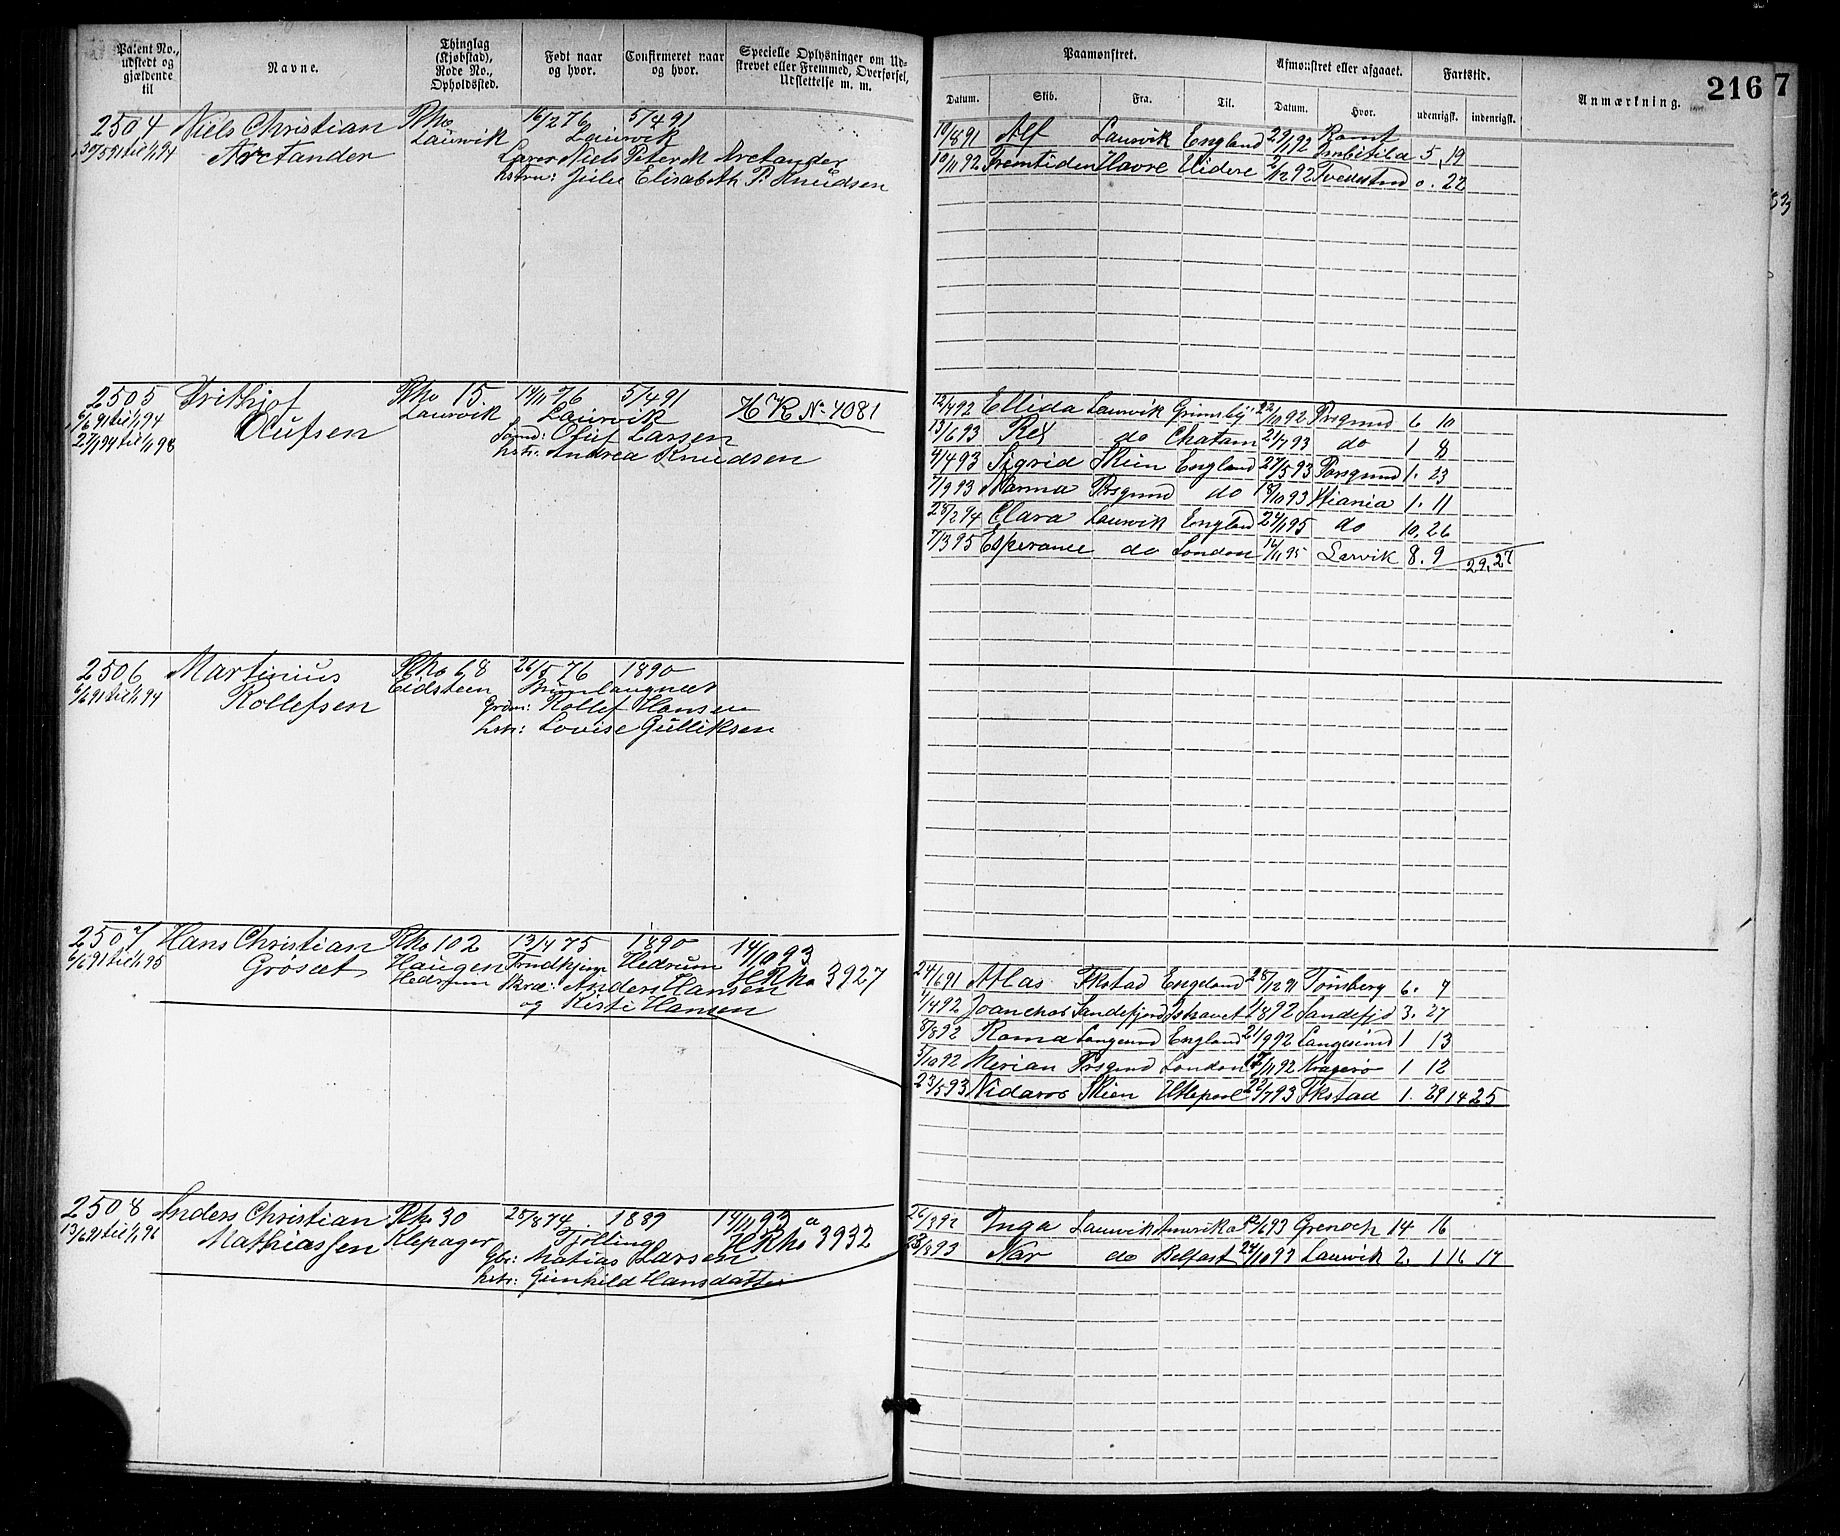 Patent No., udstedt og gjældende til
Navne.
Thinglag (Kjøbstad), Rode No., Opholdssted.
Født naar og hvor.
Confirmeret naar og hvor.
Specielle Oplysninger om Udskrevet eller Fremmed, Overførsel, Udslettelse m. m.
Paamønstret.
Datum. Skib. Fra. Til.
Afmønstret eller afgaaet.
Datum. Hvor.
Fartstid.
udenrigsk. indenrigsk.
Anmærkning.
216
7
2504 Niels Christian Rho 16/2 76 5/4 91
30/5 91 til 1/1 94 Arctander Laurvik Laurvik
Lærer Niels Peter M Arctander
hstru: Julie Elisabeth P. Knudsen
10/8 91 Alf Laurvik England 29/1 92 5, 19
10/11 92 Fremtiden Havre Videre 2/12 92 Tvedestrnd 0. 22
2505 Frithjof Rho 15. 14/11 76 5/4 91 No 4081
6/6 91 til 1/1 94 Olufsen Laurvik Laurvik
27/1 94 til 1/1 98 Oluf Larsen
hstr: Andrea Knudsen
12/4 92 Ellida Laurvik Grimsby 22/10 92 Prsgrund 6 10
13/6 93 Rex do Chatam 21/7 93 do 1 8
4/4 93 Sigrid Skien England 27/5 93 Porsgrund 1. 23
7/9 93 Norma Prsgrund do 18/10 93 Kiania 1. 11
28/2 94 Clara Laurvik England 24/1 95 do 10. 26
7/3 95 Esperance do London 16/11 95 Larvik 8. 9 29. 27
2506 Martinius Rho 68 26/5 76 1890
6/6 91 til 1/1 94 Rollefsen Eidsteen Brunlangnæs
Grdm: Rollef Hansen
hstr: Lovise Gulliksen
2507 Hans Christian Rho 102 13/4 75 1890 14/10 93
6/6 91 til 1/1 95 Grøsæt Haugen Hedrum HRho 3927
Hedrum Anders Hansen
og Kirsti Hansen
24/6 91 Atlas Fkstad England 28/12 91 Tønsberg 6. 4
1/4 92 Sandefjord Ishavet 1/8 92 Sandefjd 3. 27
8/8 92 Roma Langesund England 21/9 92 Langesund 1 13
5/10 92 Merian Prsgrnd London 17/11 92 Kragerø 1 12
23/5 93 Nidaros Skien Htlepool 22/7 93 Fkstad 1. 29 14 25
2508 Anders Christian Rho 30 28/8 74. 1889 14/11 93
13/6 91 til 1/1 96 Mathiassen Klepager Tjølling HRho a 3932
Gbr: Matias Larsen
hstr: Gunhild Hansdatter
26/3 92 Inga Laurvik Amerika 12/6 93 Grenoch 14 16
23/8 93 Nar do Belfast 24/10 93 Laurvik 2. 1 16 17